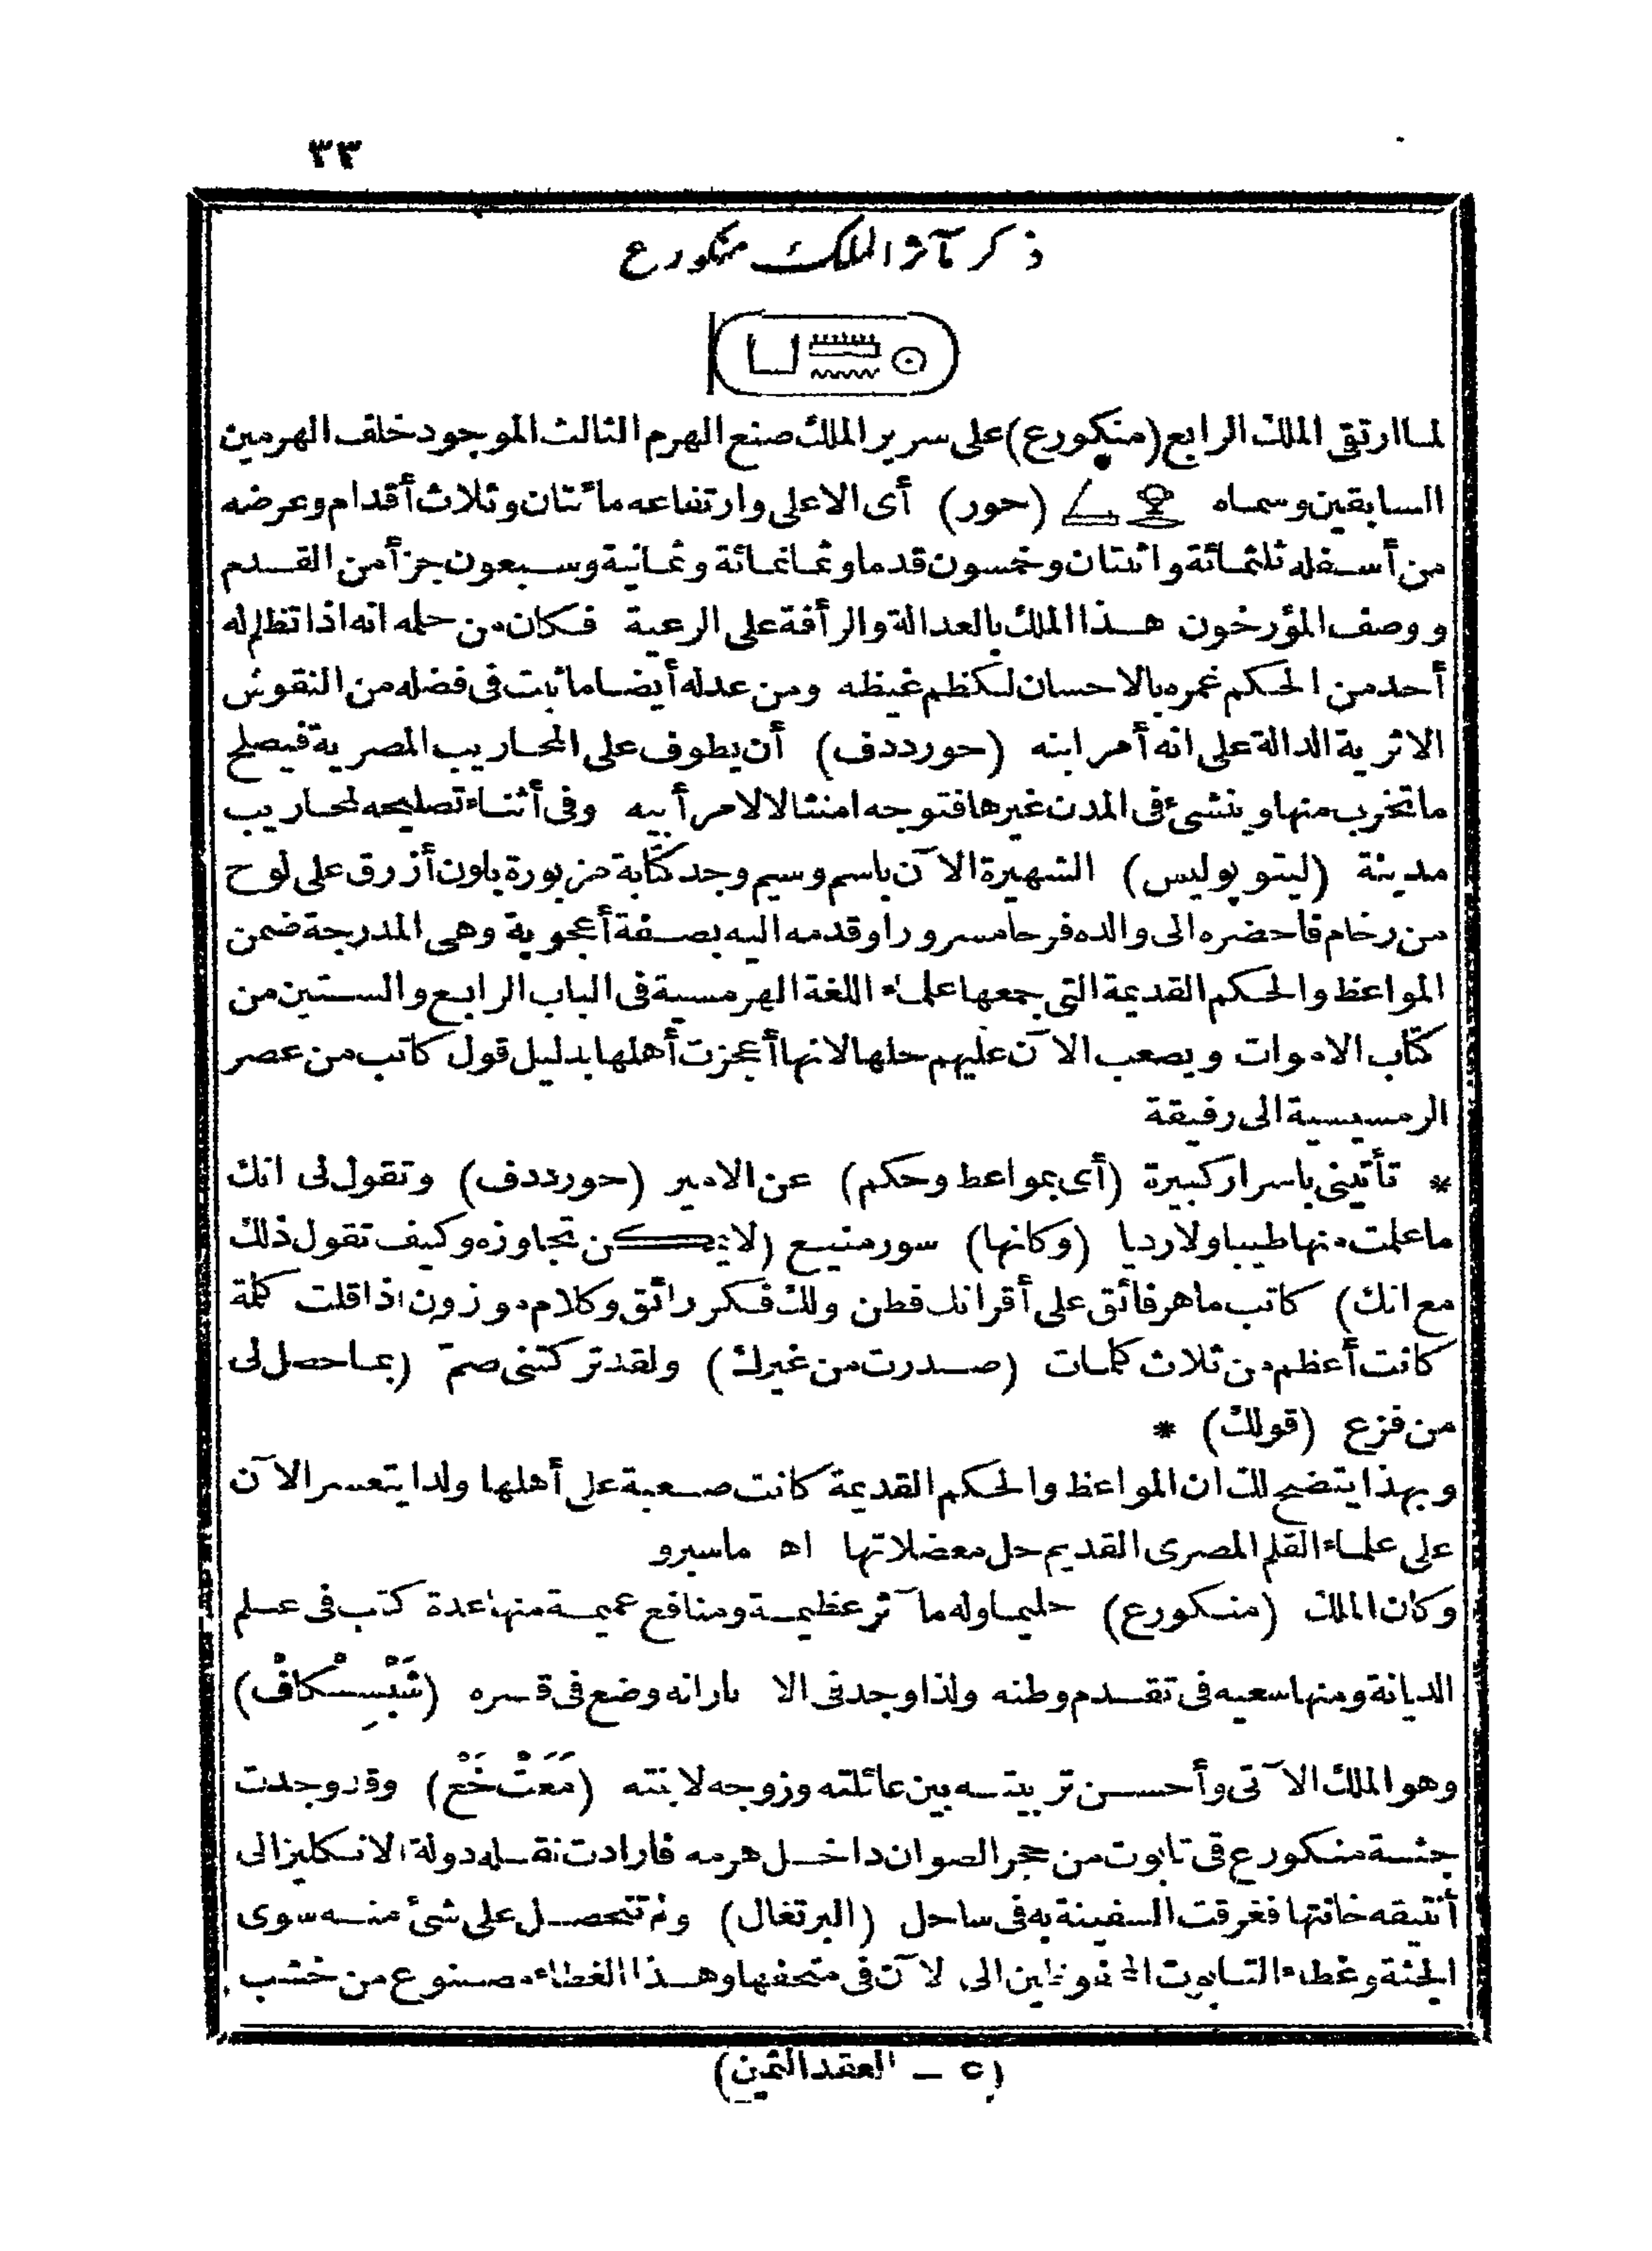 ٣٣
ذكر مآثر الملك منكورع
لما ارتقى الملك الرابع (منكورع) على سرير الملك صنع الهرم الثالث الموجود خلف الهرمين
السابقين وسماه (حور) أى الاعلى وارتفاعه مائتان وثلاث أقدام وعرضه
من أسفله ثلثمائة واثنتان وخمسون قدما وثمانمائة وثمانية وسبعون جزأ من القدم
ووصف المؤرخون هذا الملك بالعدالة والرأفة على الرعية فكان من حلمه انه اذا تظلم له
أحد من الحكم غمره بالاحسان لكظم غيظه ومن عدله أيضا ما ثبت فى فضله من النقوش
الاثرية الدالة على انه أمر ابنه (حورددف) أن يطوف على المحاريب المصرية فيصلح
ما تخرب منها وينشئ فى المدن غيرها فتوجه امتثالا لامر أبيه وفى أثناء تصليحه لمحاريب
مدينة (ليتوپوليس) الشهيرة الآن باسم وسيم وجد كتابة مزبورة بلون أزرق على لوح
من رخام فأحضره الى والده فرحا مسرورا وقدمه اليه بصفة أعجوبة وهى المدرجة ضمن
المواعظ والحكم القديمة التى جمعها علماء اللغة الهرمسية فى الباب الرابع والستين من
كتاب الاموات ويصعب الآن عليهم حلها لانها أعجزت أهلها بدليل قول كاتب من عصر
الرمسيسية الى رفيقة
* تأتينى باسرار كبيرة (أى بمواعظ وحكم) عن الامير (حورددف) وتقول لى انك
ما علمت منها طيبا ولا رديا (وكانها) سور منيع (لا يمكن تجاوزه وكيف تقول ذلك
مع انك) كاتب ماهر فائق على أقرانك فطن ولك فكر رائق وكلام موزون اذا قلت كلمة
كانت أعظم من ثلاث كلمات (صدرت من غيرك) ولقد تركتنى صمّ (بما حصل لى
من فزع (قولك) *
وبهذا يتضح لك ان المواعظ والحكم القديمة كانت صعبة على أهلها ولذا يتعسر الآن
على علماء القلم المصرى القديم حل معضلاتها اه ماسيرو
وكان الملك (منكورع) حليما وله مآثر عظيمة ومنافع عميمة منها عدة كتب فى علم
الديانة ومنها سعيه فى تقدم وطنه ولذا وجد فى الا ثار انه وضع فى قصره (شَبْسِسْكَافْ)
وهو الملك الآتى وأحسن تربيته بين عائلته وزوجه لابنته (مَعَتْ خَعْ) وقد وجدت
جثة منكورع فى تابوت من حجر الصوان داخل هرمه فارادت نقله دولة الانكليز الى
أنتيقه خانتها فغرقت السفينة به فى ساحل (البرتغال) ولم تتحصل على شئ منه سوى
الجثة وغطاء التابوت المحفوظين الى لآن فى متحفها وهذا الغطاء مصنوع من خشب
(٥ - العقد الثمين)